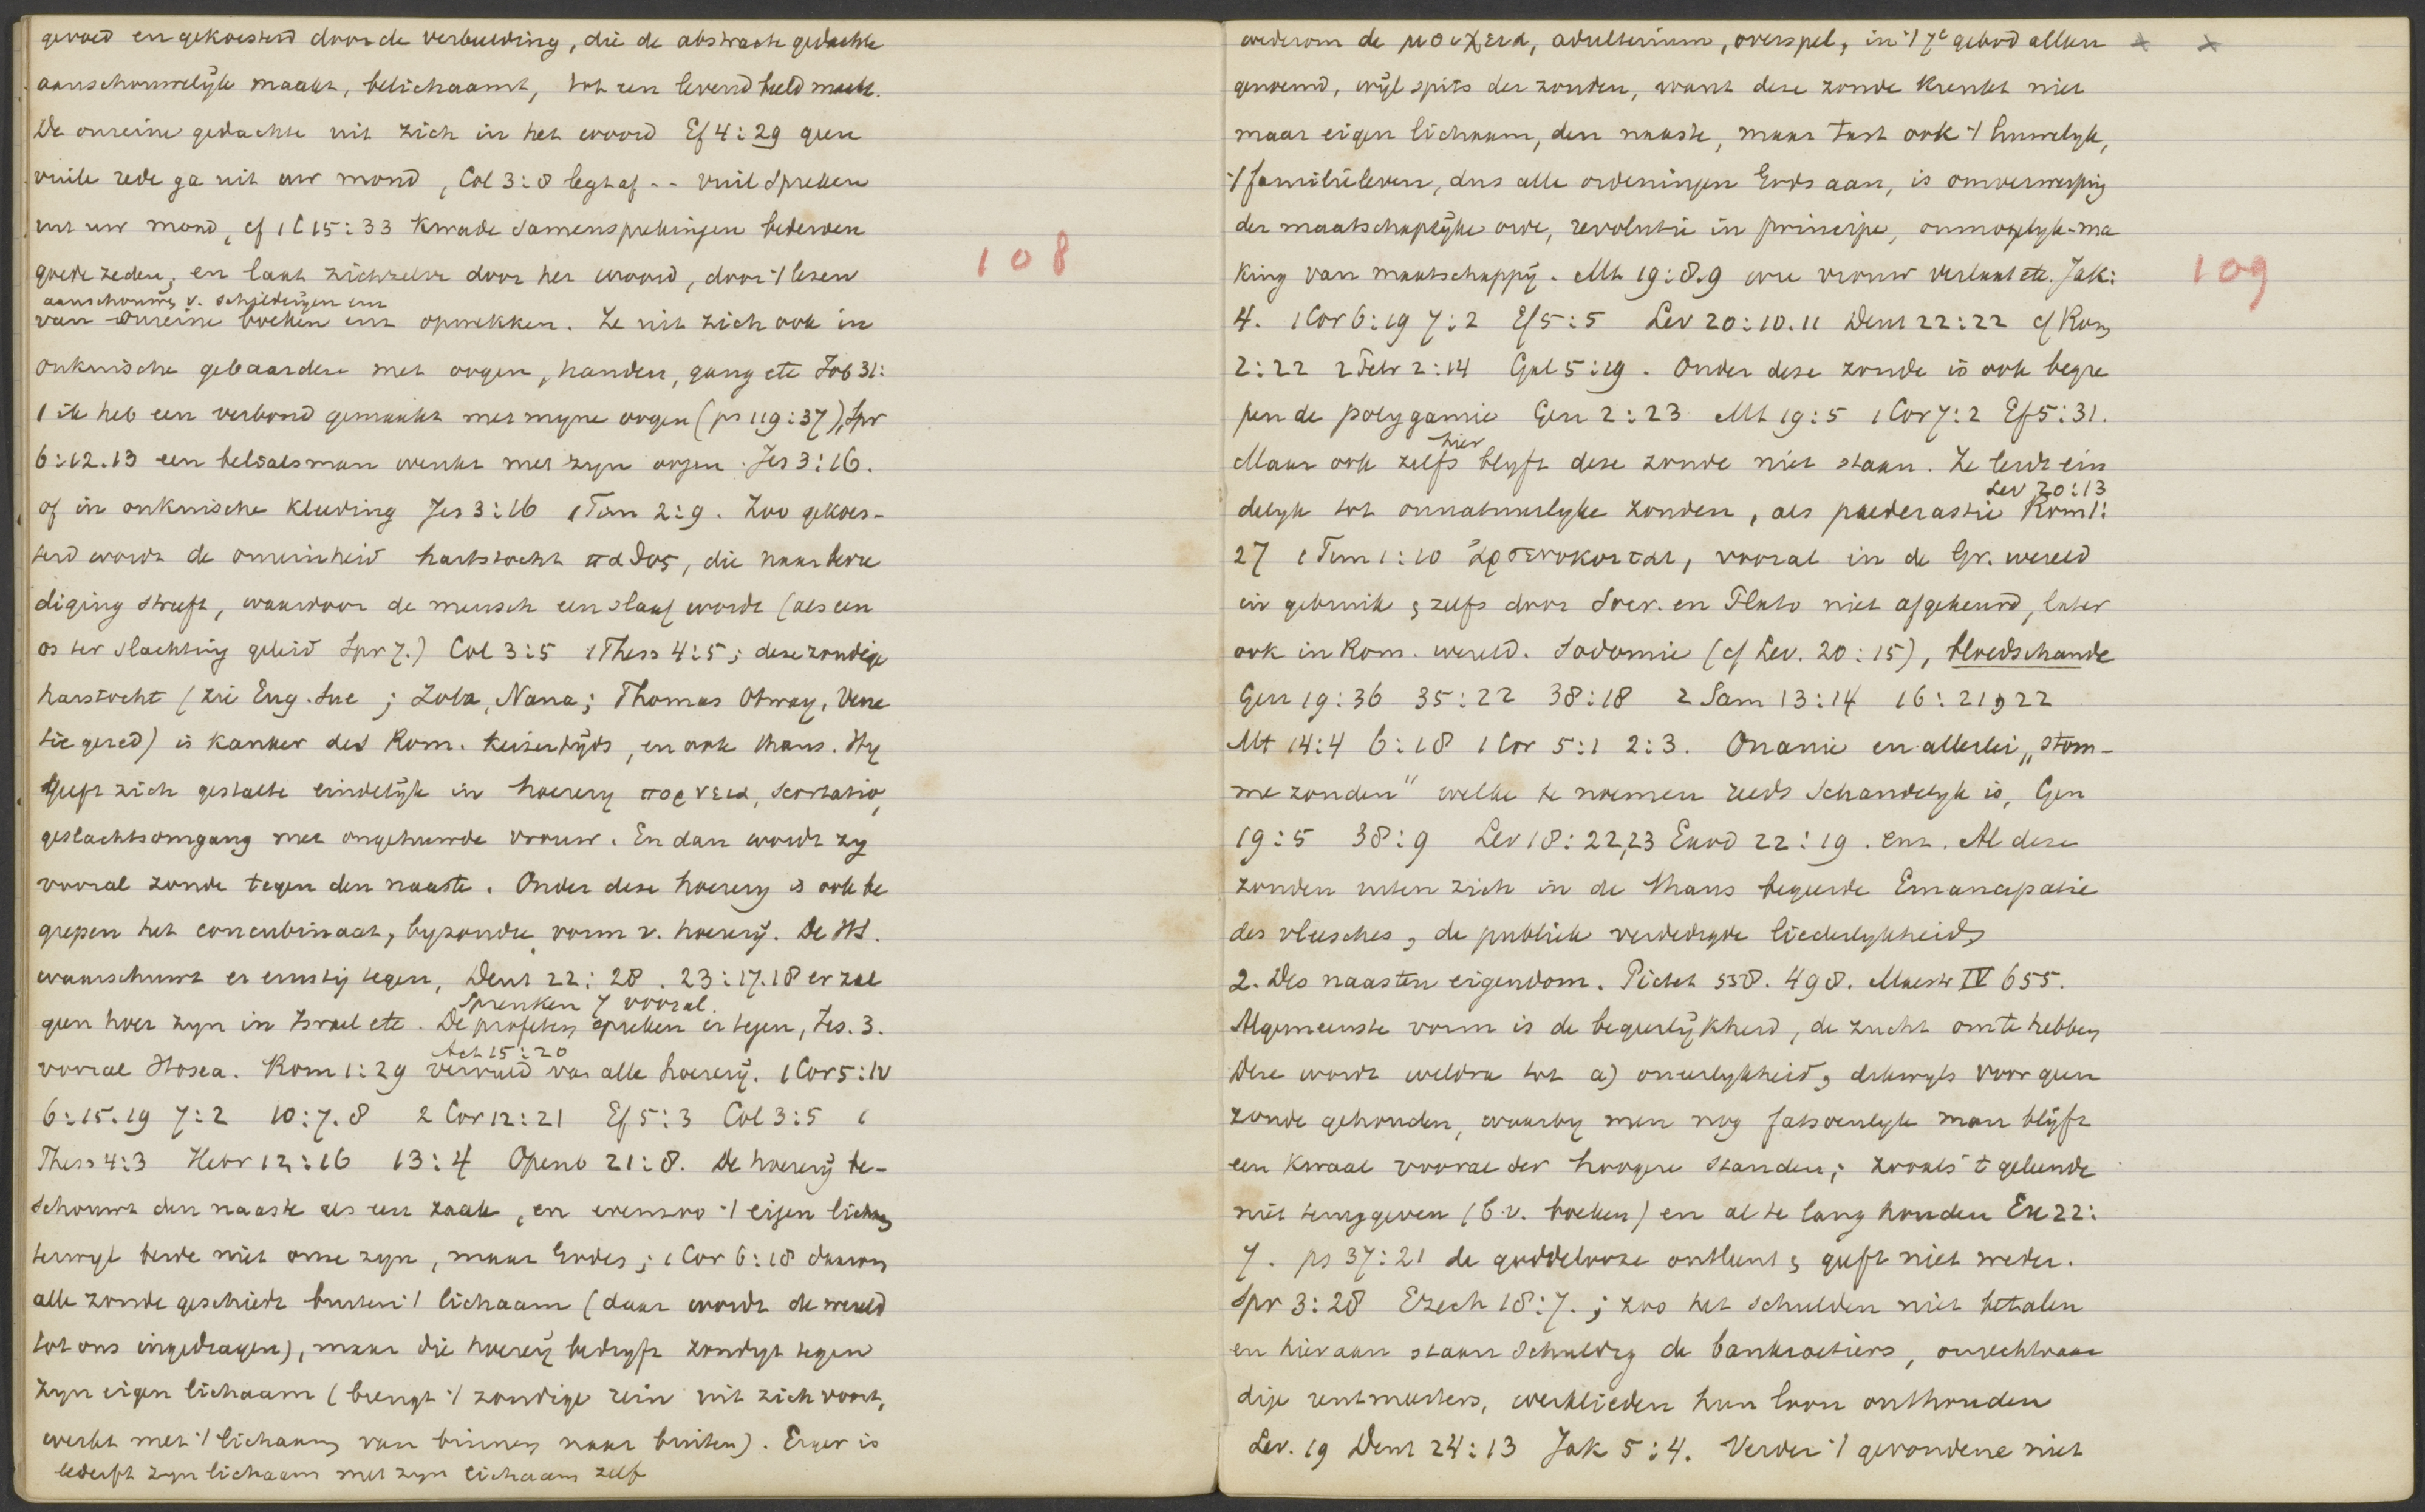 gevoed en gekoesterd door de verbeelding, die de abstracte gedachte
aanschouwelijk maakt, belichaamt, tot een levend beeld maakt.
De onreine gedachte uit zich in het woord Ef 4:29 geen
vuile rede ga uit uw mond, Col 3:8 legt af -- vuil spreken
uit uw mond, cf 1 C 15:33 Kwade samensprekingen bederven
goede zeden, en laat zichzelve door het woord, door 't lezen
aanschouwg v. schilderijen enz
van onreine boeken enz opwekken. Ze uit zich ook in
onkuische gebaarden met oogen, handen, gang etc Job 31:
1 ik heb een verbond gemaakt met myne oogen (ps 119:37), Spr
6:12.13 een belialsman wenkt met zyn oogen. Jes 3:16.
of in onkuische kleeding Jes 3:16 1 Tim 2:9. Zoo gekoes-
terd wordt de onreinheid hartstocht παθος, die naar bevre
diging streeft, waardoor de mensch een slaaf wordt (als een
os ter slachting geleid Spr 7.) Col 3:5 1 Thess 4:5; deze zondige
harstocht (zie Eug. Sue; Zola, Nana; Thomas Otway, Vene
tie gered) is kanker des Rom. keizertijds, en ook thans. Hy
geeft zich gestalte eindelijk in hoerery πορνεια, scortatio,
geslachtsomgang met ongehuwde vrouw. En dan wordt zy
vooral zonde tegen den naaste. Onder deze hoerery is ook be
grepen het concubinaat, byzondre vorm v. hoererij. De HS.
waarschuwt er ernstig tegen, Deut 22:28. 23:17.18 er zal
Spreuken 7 vooral.
geen hoer zyn in Israel etc. De profeten spreken er tegen, Jes. 3.
Act 15:20
vooral Hosea. Rom 1:29 vervuld van alle hoererij. 1 Cor 5:10
6:15.19 7:2 10:7.8 2 Cor 12:21 Ef 5:3 Col 3:5 1
Thess 4:3 Hebr 12:16 13:4 Openb 21:8. De hoererij be-
schouwt den naaste als een zaak, en evenzoo 't eigen lichaam
terwyl beide niet onze zyn, maar Godes; 1 Cor 6:18 daarom
alle zonde geschiedt buiten 't lichaam (daar wordt de wereld
tot ons ingedragen), maar die hoererij bedryft zondigt tegen
zyn eigen lichaam (brengt 't zondige rein uit zich voort,
werkt met 't lichaam van binnen naar buiten). Erger is
bederft zyn lichaam met zyn lichaam zelf
108
wederom de μοιχεια, adulterium, overspel, in 't 7e gebod alleen
genoemd, wijl spits der zonden, want deze zonde krenkt niet
maar eigen lichaam, den naaste, maar tast ook 't huwelyk,
't familieleven, dus alle ordeningen Gods aan, is omverwerping
der maatschaplijke orde, revolutie in principe, onmogelyk-ma
king van maatschappij. Mt 19:8.9 wie vrouw verlaat etc. Jak:
4. 1 Cor 6:19 7:2 Ef 5:5 Lev 20:10.11 Deut 22:22 cf Rom
2:22 2 Petr 2:14 Gal 5:19. Onder deze zonde is ook begre
pen de polygamie Gen 2:23 Mt 19:5 1 Cor 7:2 Ef 5:31.
hier
Maar ook zelfs blyft deze zonde niet staan. Ze leidt ein
Lev 20:13
delyk tot onnatuurlyke zonden, als paederastie Rom 1:
27 1 Tim 1:10 ἀρσενοκοιται, vooral in de Gr. wereld
in gebruik, zelfs door Socr. en Plato niet afgekeurd, later
ook in Rom. wereld. Sodomie (cf Lev. 20:15), bloedschande
Gen 19:36 35:22 38:18 2 Sam 13:14 16:21,22
Mt 14:4 6:18 1 Cor 5:1 2:3. Onanie en allerlei „stom-
me zonden" welke te noemen reeds schandelyk is, Gen
19:5 38:9 Lev 18:22,23 Exod 22:19. enz. Al deze
zonden uiten zich in de thans begeerde Emancipatie
des vleesches, de publiek verdedigde liederlykheid,
2. Des naasten eigendom. Pictet 558. 498. Mastr IV 655.
Algemeenste vorm is de begeerlijkheid, de zucht om te hebben
Deze wordt weldra tot a) oneerlykheid, dikwyls voor geen
zonde gehouden, waarby men nog fatsoenlyk man blijft
een kwaal vooral der hoogere standen; zooals 't geleende
niet teruggeven (b.v. boeken) en al te lang houden Ex 22:
7. ps 37:21 de goddelooze ontleent, geeft niet weder.
Spr 3:28 Ezech 18:7.; zoo het schulden niet betalen
en hieraan staan schuldig de bankroetiers, onrechtvaar
dige rentmeesters, werklieden hun loon onthouden
Lev. 19 Deut 24:13 Jak 5:4. Verder 't gevondene niet
109